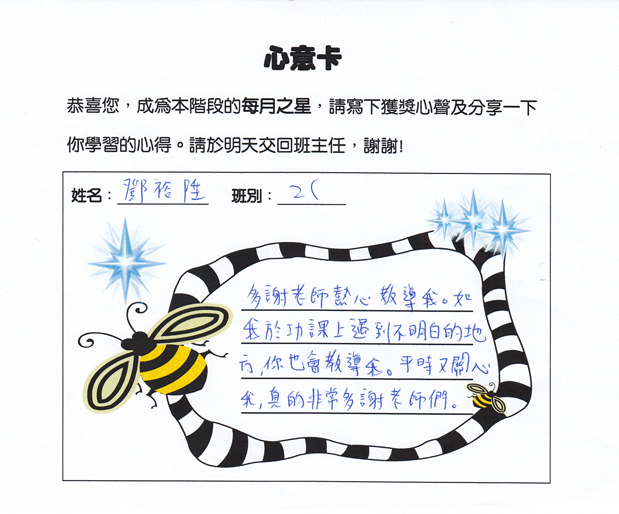 心意卡
恭喜您，成為本階段的每月之星，請寫下獲獎心聲及分享一下
你學習的心得。請於明天交回班主任，謝謝!
姓名：鄧裕陞 班別：2C
多謝老師熱心教導我。如
我於功課上遇到不明白的地
方,你也會教導我。平時又關心
我,真的非常多謝老師們。